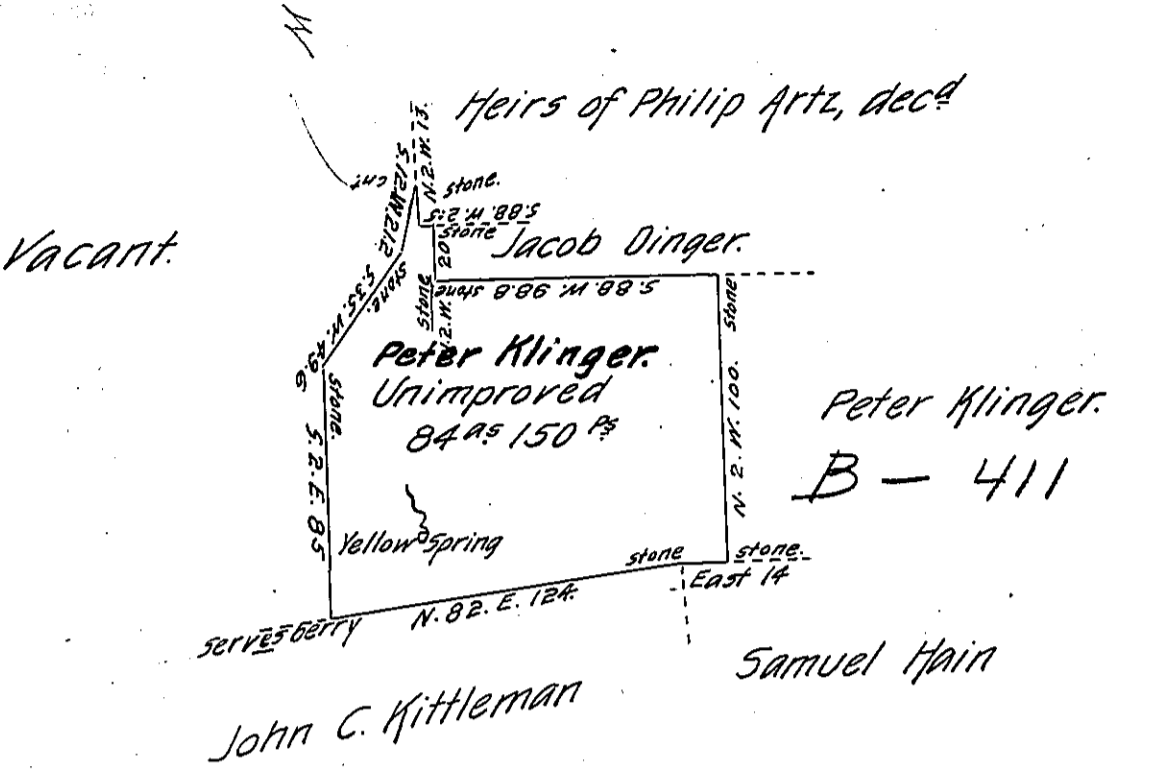 N
Heirs of Philip Artz, decd
N. 2. W. 13.
S. 12. W. 21.2
stone.
S. 88. W. 2.5
stone
Jacob Dinger.
Vacant.
20
stone
N. 2. W.
S. 88. W. 98.8 stone
stone.
S. 35. W. 49.6
stone
Peter Klinger.
Unimproved
84 as 150 Ps
N. 2. W. 100.
Peter Klinger.
B - 411
stone.
S. 2. E. 85
Yellow Spring
stone
stone.
East 14
N. 82. E. 124.
Servesberry
Samuel Hain
John C. Kittleman